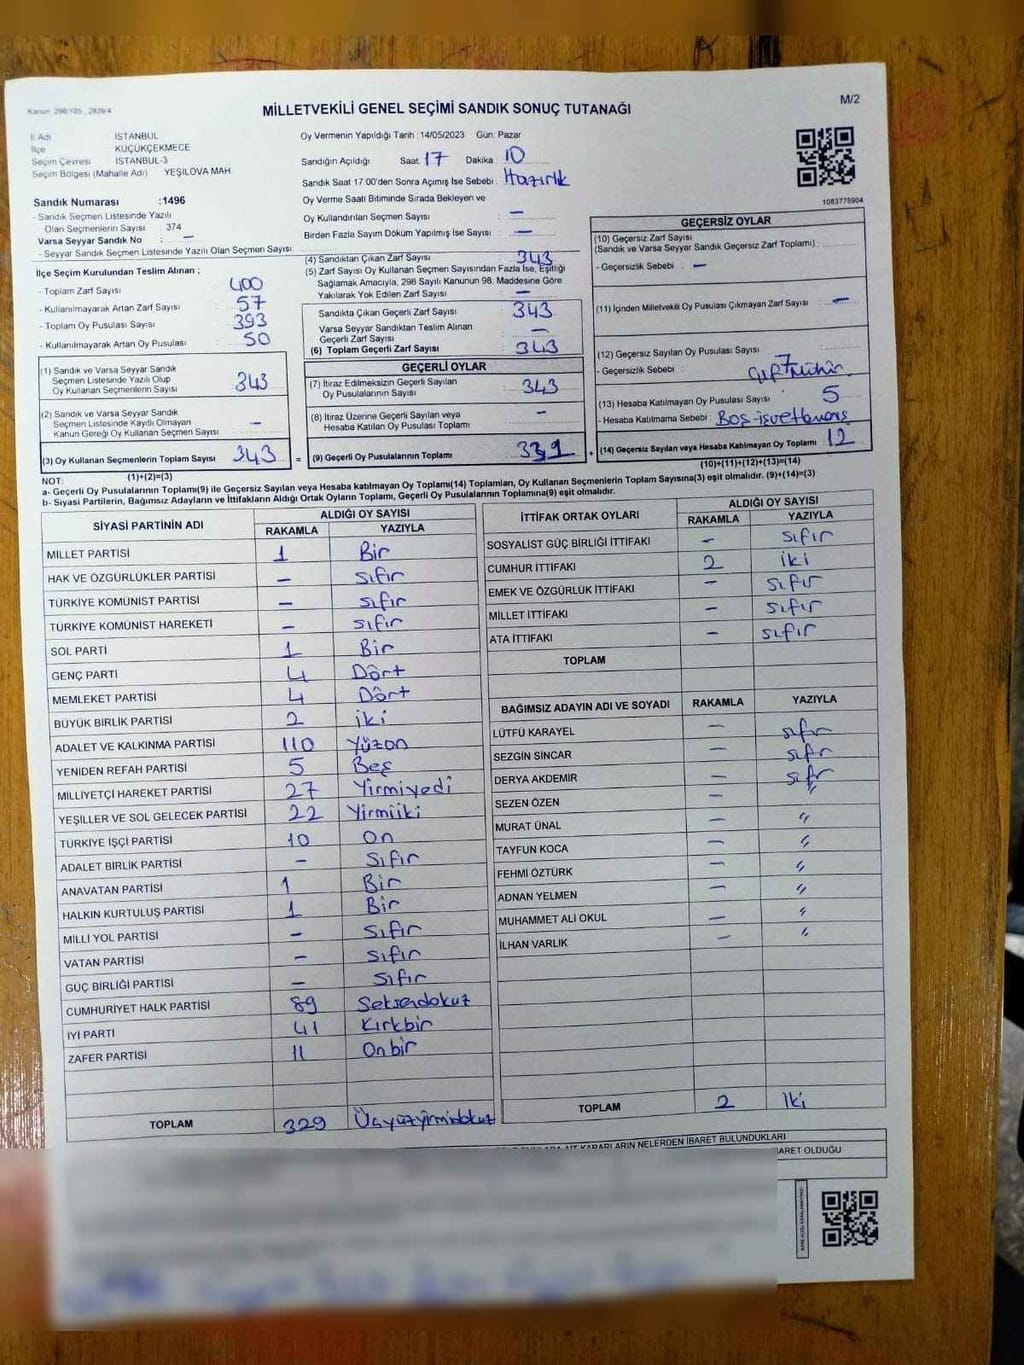 Kanun 298/105 , 2839/4
MİLLETVEKİLİ GENEL SEÇİMİ SANDIK SONUÇ TUTANAĞI
M/2
İl Adı İSTANBUL
İlçe KÜÇÜKÇEKMECE
Seçim Çevresi İSTANBUL-3
Seçim Bölgesi (Mahalle Adı) YEŞİLOVA MAH.
Sandık Numarası :1496
- Sandık Seçmen Listesinde Yazılı
Olan Seçmenlerin Sayısı 374
Varsa Seyyar Sandık No : —
- Seyyar Sandık Seçmen Listesinde Yazılı Olan Seçmen Sayısı:
Oy Vermenin Yapıldığı Tarih : 14/05/2023 Gün: Pazar
Sandığın Açıldığı Saat 17 Dakika : 10
Sandık Saat 17:00'den Sonra Açılmış İse Sebebi : Hazırlık
Oy Verme Saati Bitiminde Sırada Bekleyen ve
Oy Kullandırılan Seçmen Sayısı —
Birden Fazla Sayım Döküm Yapılmış İse Sayısı : —
1083775904
İlçe Seçim Kurulundan Teslim Alınan :
- Toplam Zarf Sayısı 400
- Kullanılmayarak Artan Zarf Sayısı 57
- Toplam Oy Pusulası Sayısı 393
- Kullanılmayarak Artan Oy Pusulası 50
(1) Sandık ve Varsa Seyyar Sandık
Seçmen Listesinde Yazılı Olup
Oy Kullanan Seçmenlerin Sayısı 343
(2) Sandık ve Varsa Seyyar Sandık
Seçmen Listesinde Kayıtlı Olmayan
Kanun Gereği Oy Kullanan Seçmen Sayısı —
(3) Oy Kullanan Seçmenlerin Toplam Sayısı 343
(1)+(2)=(3)
(4) Sandıktan Çıkan Zarf Sayısı 343
(5) Zarf Sayısı Oy Kullanan Seçmen Sayısından Fazla İse, Eşitliği
Sağlamak Amacıyla, 298 Sayılı Kanunun 98. Maddesine Göre
Yakılarak Yok Edilen Zarf Sayısı : —
Sandıkta Çıkan Geçerli Zarf Sayısı 343
Varsa Seyyar Sandıktan Teslim Alınan
Geçerli Zarf Sayısı —
(6) Toplam Geçerli Zarf Sayısı 343
GEÇERLİ OYLAR
(7) İtiraz Edilmeksizin Geçerli Sayılan
Oy Pusulalarının Sayısı 343
(8) İtiraz Üzerine Geçerli Sayılan veya
Hesaba Katılan Oy Pusulası Toplamı —
= (9) Geçerli Oy Pusulalarının Toplamı 331 +
GEÇERSİZ OYLAR
(10) Geçersiz Zarf Sayısı
(Sandık ve Varsa Seyyar Sandık Geçersiz Zarf Toplamı) :
- Geçersizlik Sebebi : —
(11) İçinden Milletvekili Oy Pusulası Çıkmayan Zarf Sayısı : —
(12) Geçersiz Sayılan Oy Pusulası Sayısı : 7
- Geçersizlik Sebebi : Çift mühür
(13) Hesaba Katılmayan Oy Pusulası Sayısı 5
- Hesaba Katılmama Sebebi : Boş
(14) Geçersiz Sayılan veya Hesaba Katılmayan Oy Toplamı 12
(10)+(11)+(12)+(13)=(14)
NOT:
a- Geçerli Oy Pusulalarının Toplamı(9) ile Geçersiz Sayılan veya Hesaba katılmayan Oy Toplamı(14) Toplamları, Oy Kullanan Seçmenlerin Toplam Sayısına(3) eşit olmalıdır. (9)+(14)=(3)
b- Siyasi Partilerin, Bağımsız Adayların ve İttifakların Aldığı Ortak Oyların Toplamı, Geçerli Oy Pusulalarının Toplamına(9) eşit olmalıdır.
SİYASİ PARTİNİN ADI ALDIĞI OY SAYISI
RAKAMLA YAZIYLA
MİLLET PARTİSİ 1 Bir
HAK VE ÖZGÜRLÜKLER PARTİSİ — sıfır
TÜRKİYE KOMÜNİST PARTİSİ — sıfır
TÜRKİYE KOMÜNİST HAREKETİ — sıfır
SOL PARTİ 1 Bir
GENÇ PARTİ 4 Dört
MEMLEKET PARTİSİ 4 Dört
BÜYÜK BİRLİK PARTİSİ 2 iki
ADALET VE KALKINMA PARTİSİ 110 Yüzon
YENİDEN REFAH PARTİSİ 5 Beş
MİLLİYETÇİ HAREKET PARTİSİ 27 Yirmiyedi
YEŞİLLER VE SOL GELECEK PARTİSİ 22 Yirmiiki
TÜRKİYE İŞÇİ PARTİSİ 10 On
ADALET BİRLİK PARTİSİ — Sıfır
ANAVATAN PARTİSİ 1 Bir
HALKIN KURTULUŞ PARTİSİ 1 Bir
MİLLİ YOL PARTİSİ — Sıfır
VATAN PARTİSİ — sıfır
GÜÇ BİRLİĞİ PARTİSİ — Sıfır
CUMHURİYET HALK PARTİSİ 89 Seksendokuz
İYİ PARTİ 41 Kırkbir
ZAFER PARTİSİ 11 Onbir
TOPLAM 329 Üçyüzyirmidokuz
İTTİFAK ORTAK OYLARI ALDIĞI OY SAYISI
RAKAMLA YAZIYLA
SOSYALİST GÜÇ BİRLİĞİ İTTİFAKI — sıfır
CUMHUR İTTİFAKI 2 iki
EMEK VE ÖZGÜRLÜK İTTİFAKI — sıfır
MİLLET İTTİFAKI — sıfır
ATA İTTİFAKI — sıfır
TOPLAM
BAĞIMSIZ ADAYIN ADI VE SOYADI RAKAMLA YAZIYLA
LÜTFÜ KARAYEL — sıfır
SEZGİN SİNCAR — sıfr
DERYA AKDEMİR — sıfr
SEZEN ÖZEN — "
MURAT ÜNAL — "
TAYFUN KOCA — "
FEHMİ ÖZTÜRK — "
ADNAN YELMEN — "
MUHAMMET ALİ OKUL — "
İLHAN VARLIK — "
TOPLAM 2 İki
KARARLARIN NELERDEN İBARET BULUNDUKLARI
İBARET OLDUĞU